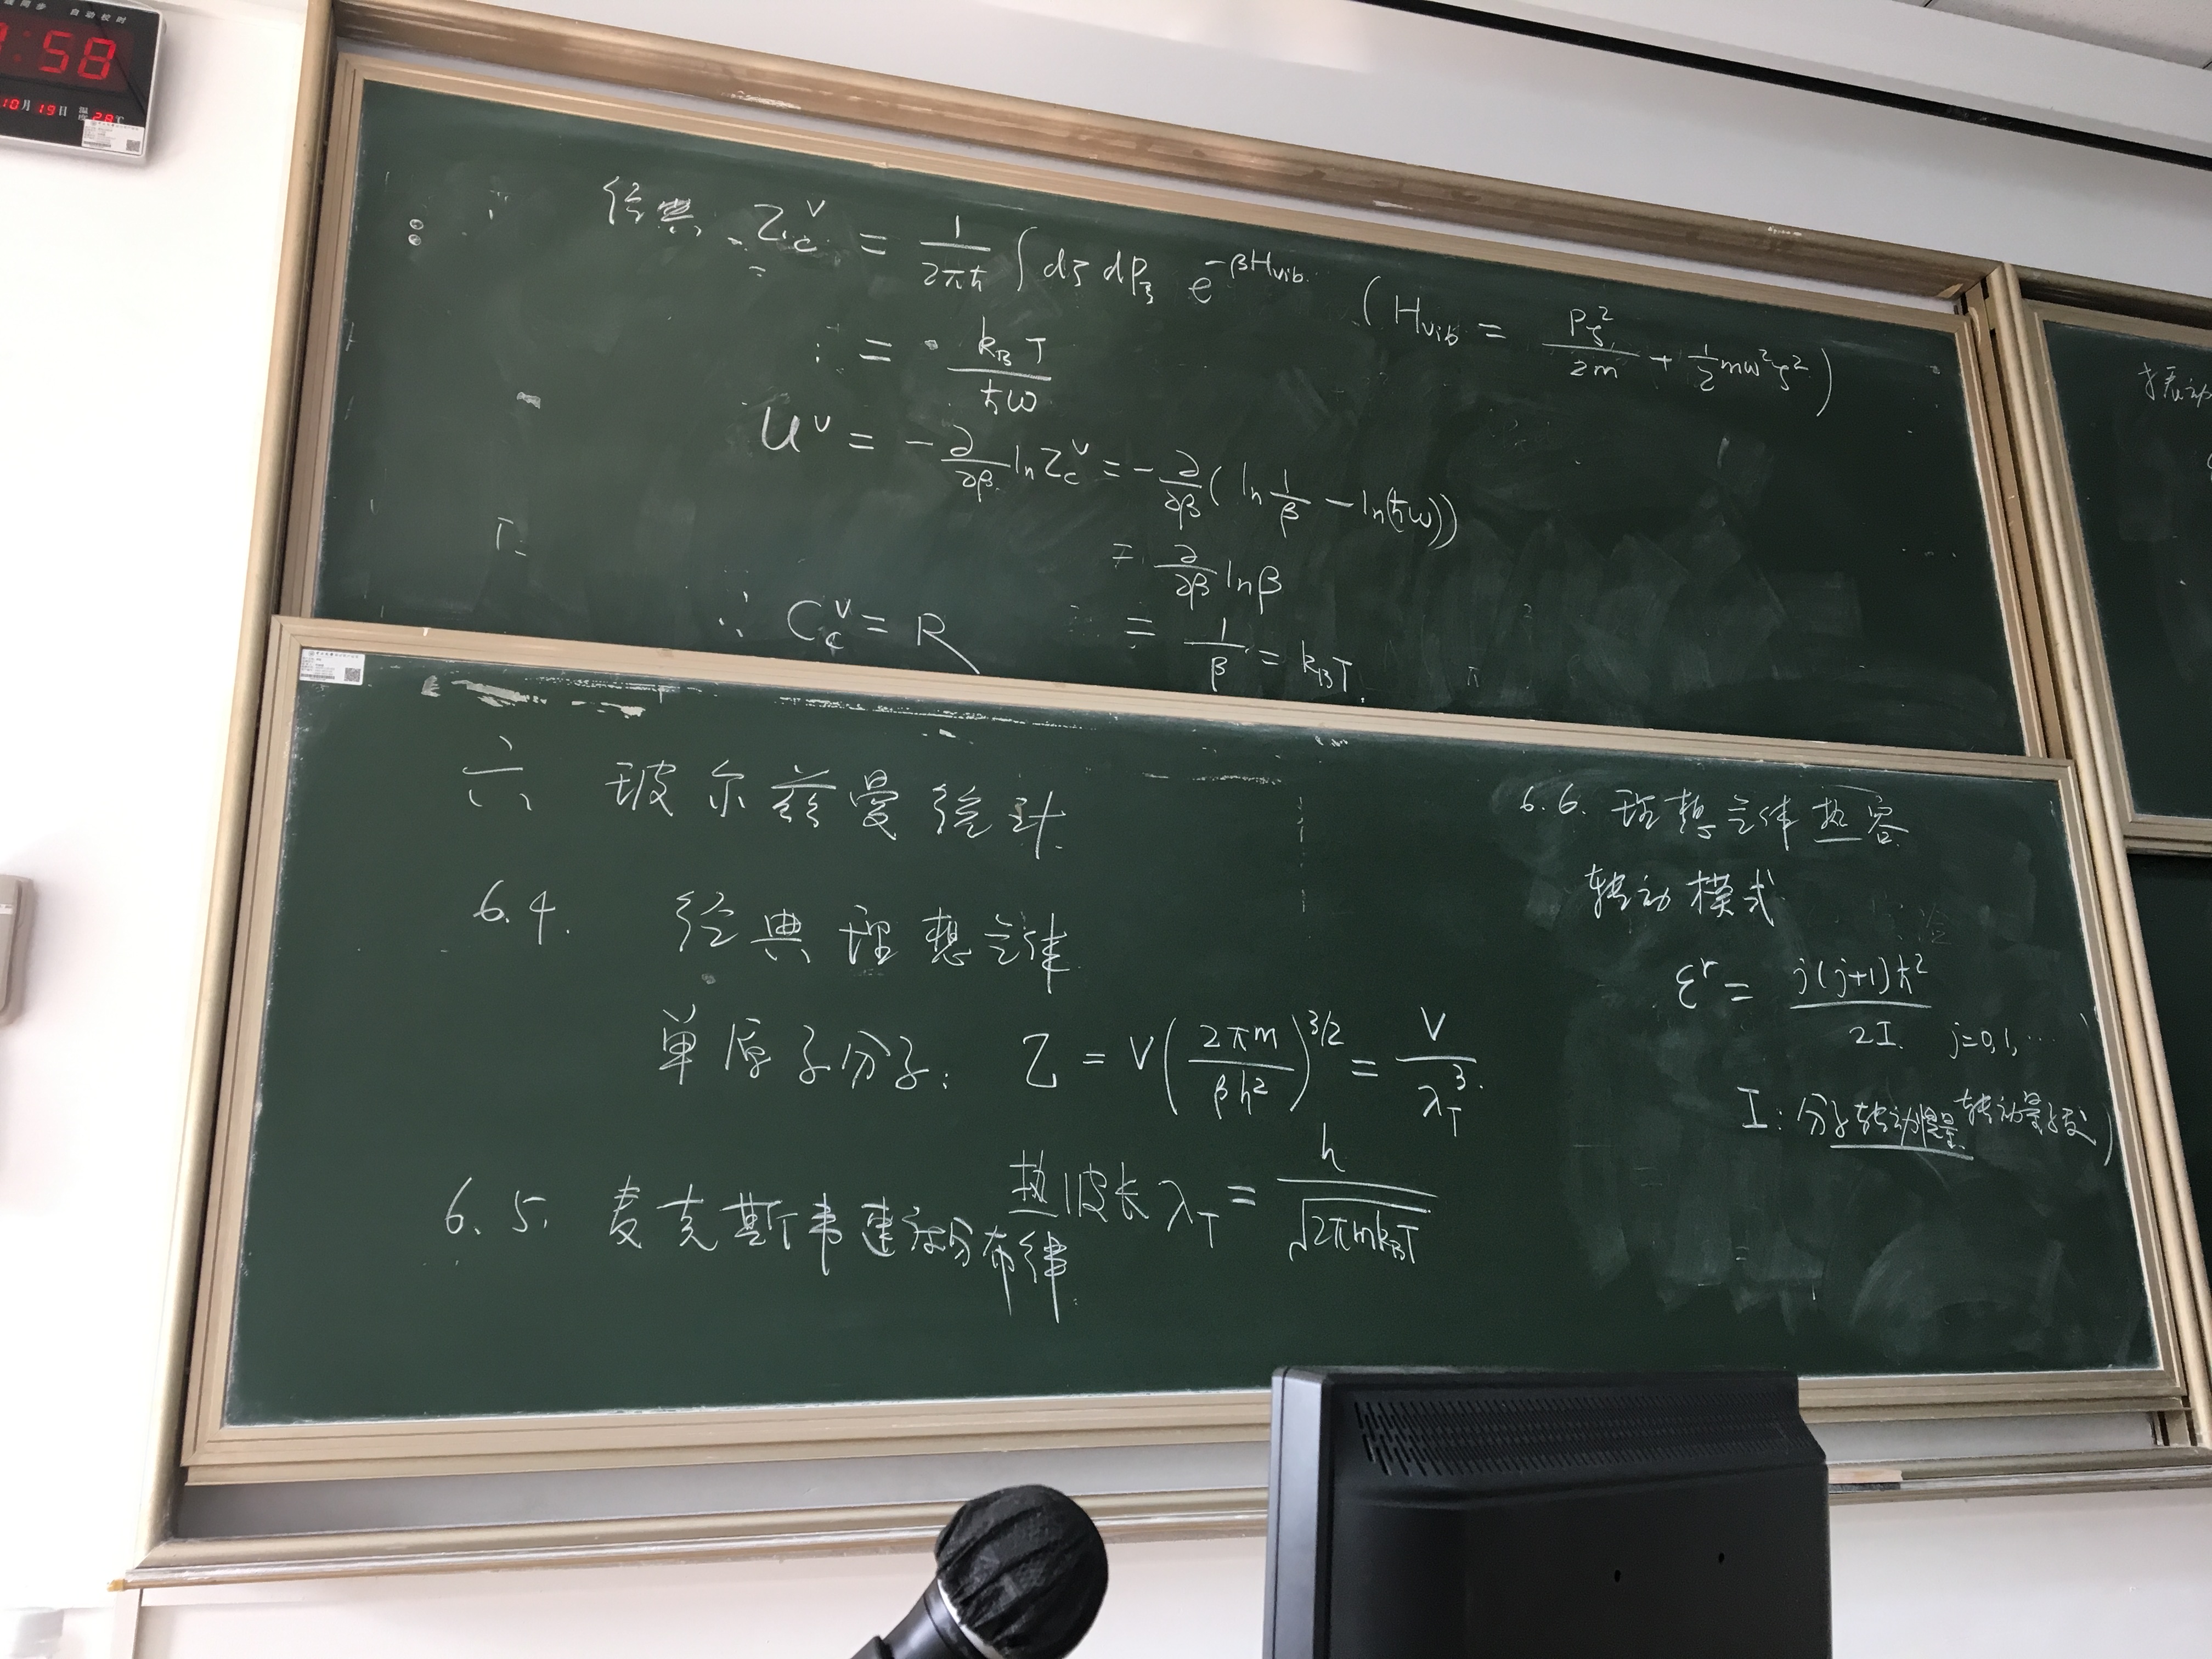 :58
10月19日 温度 28℃
自动校时
经典 Z_c^v = \frac{1}{2πħ} ∫ dζ dp_ζ e^{-βH_{vib}} ( H_{vib} = \frac{P_ζ^2}{2m} + \frac{1}{2}mω^2ζ^2 )
= \frac{k_B T}{ħω}
U^v = -\frac{∂}{∂β} ln Z_c^v = -\frac{∂}{∂β}( ln\frac{1}{β} - ln(ħω))
= \frac{∂}{∂β} lnβ
∴ C_c^v = R
= \frac{1}{β} = k_B T.
六 玻尔兹曼统计
6.4. 经典理想气体
单原子分子: Z = V(\frac{2πm}{βh^2})^{3/2} = \frac{V}{λ_T^3}.
热波长 λ_T = \frac{h}{\sqrt{2πmk_BT}}
6.5. 麦克斯韦速度分布律
6.6. 理想气体热容
转动模式
ε^r = \frac{j(j+1)ħ^2}{2I} j=0,1,…
转动量子数)
I: 分子转动惯量
振动